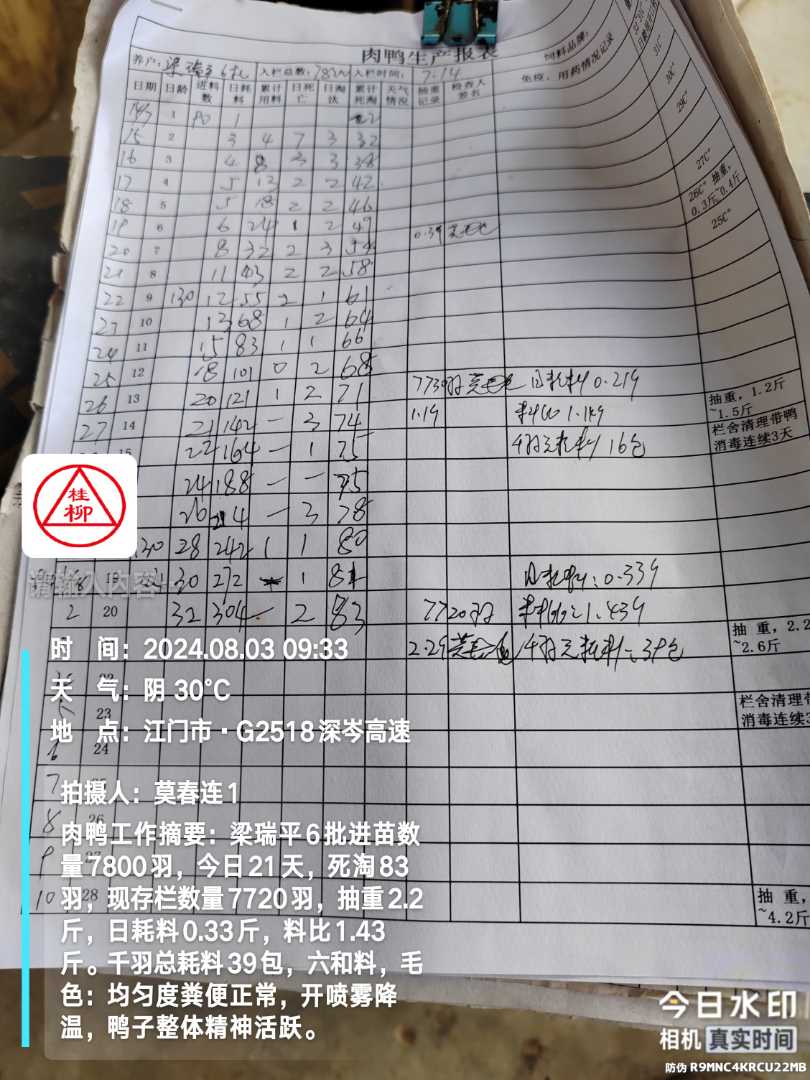 肉鸭生产报表
养户: 入栏总数: 入栏时间: 7.14 饲料品牌:
日期 日龄 进料数 日耗料 累计用料 日死亡 日淘汰 累计死淘 天气情况 抽重记录 检查人签名 免疫、用药情况记录
31C°
30C°
29C°
1 1
15 2 3 4 7 3 32
16 3 4 8 3 3 38
27C°
17 4 5 13 2 2 42
26C° 抽重,
0.3斤~0.4斤
18 5 5 18 2 2 46
25C°
19 6 6 24 1 2 49
20 7 8 32 2 3 54
21 8 11 43 2 2 58
22 9 130 12 55 2 1 61
23 10 13 68 1 2 64
24 11 15 83 1 1 66
25 12 18 101 0 2 68
26 13 20 121 1 2 71 日耗料 0.219
抽重, 1.2斤
~1.5斤
27 14 21 142 — 3 74 1.19
栏舍清理带鸭
消毒连续3天
15 22 164 — 1 75 16包
24 188 — — 75
26 214 — 3 78
130 28 242 1 1 80
19 30 272 1 81 日耗料: 0.339
2 20 32 304 — 2 83 7720羽 1.439
抽重, 2.2
~2.6斤
2.29 39包
22
5 23
栏舍清理带
消毒连续3
6 24
7
8 26
9 27
10 28
抽重,
~4.2斤
桂柳
请输入内容
时 间: 2024.08.03 09:33
天 气: 阴 30℃
地 点: 江门市·G2518深岑高速
拍摄人: 莫春连1
肉鸭工作摘要: 梁瑞平6批进苗数
量7800羽，今日21天，死淘83
羽，现存栏数量7720羽，抽重2.2
斤，日耗料0.33斤，料比1.43
斤。千羽总耗料39包，六和料，毛
色：均匀度粪便正常，开喷雾降
温，鸭子整体精神活跃。
今日水印
相机 真实时间
防伪 R9MNC4KRCU22MB